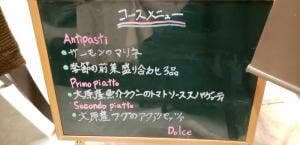 コースメニュー
Antipasti
・サーモンのマリネ
・季節の前菜盛り合わせ3品
Primo piatto
・大原産魚介ラグーのトマトソーススパゲッティ
Secondo piatto
・大原産フグのアクアパッツァ
Dolce